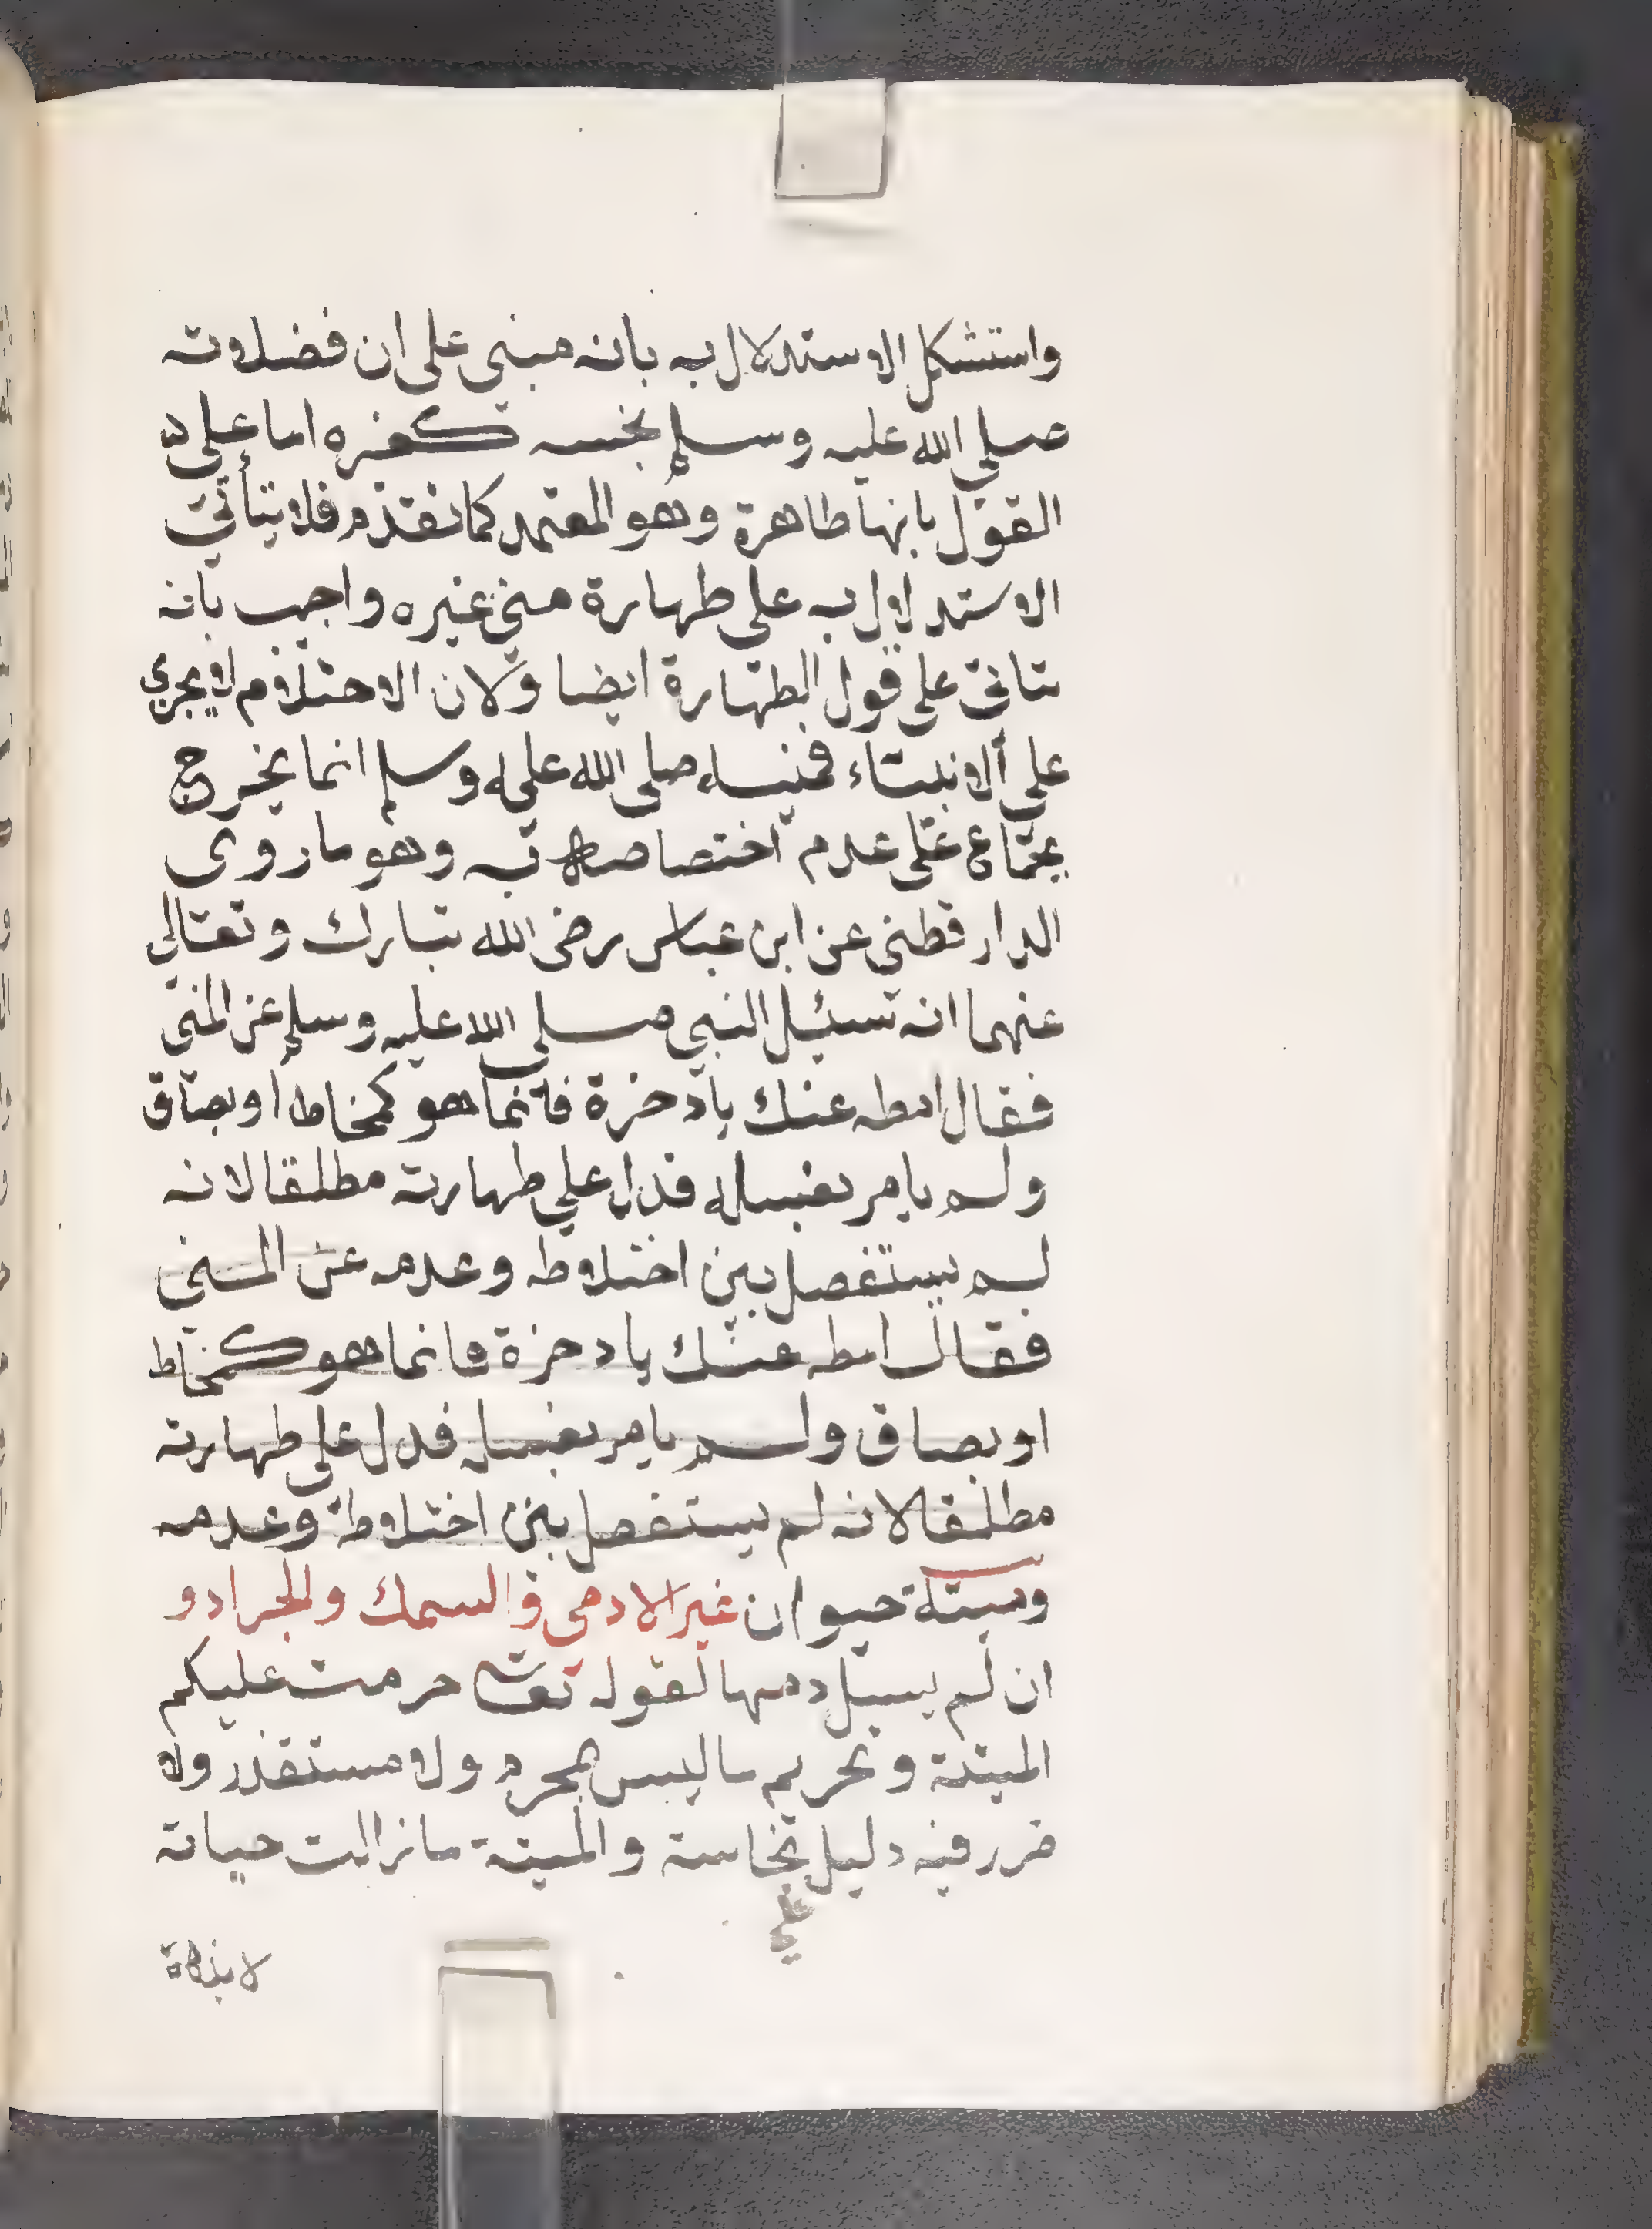 واستشكل الاستدلال به بانه مبني على ان فضلاته
صلى الله عليه وسلم نجسه كغيره اما على
القول بانها طاهرة وهو المعتمد كما تقدم فلا يتأتى
الاستدلال به على طهارة مني غيره واجيب بانه
يتاتي على قول الطهارة ايضا ولان الاحتلام لا يجري
على الانبياء فمنيه صلى الله عليه وسلم انما يخرج
بجماع على عدم اختصاصه به وهو ما روى
الدارقطني عن ابن عباس رضى الله تبارك وتعالى
عنهما انه سئل النبي صلى الله عليه وسلم عن المني
فقال امطه عنك باذخرة فانما هو كمخاط او بصاق
ولم يامر بغسله فدل على طهارته مطلقا لانه
لم يستفصل بين اختلاطه وعدمه عن المني
فقال امطه عنك باذخرة فانما هو كمخاط
او بصاق ولم يامر بغسله فدل على طهارته
مطلقا لانه لم يستفصل بين اختلاطه وعدمه
وميتة حيوان غير الادمي والسمك والجراد و
ان لم يسيل دمها لقوله تعالى حرمت عليكم
الميتة وتحريم ما ليس بمحرم ولا مستقذر ولا
ضرر فيه دليل نجاسته والميتة ما زالت حياته
على
لا بذكاة